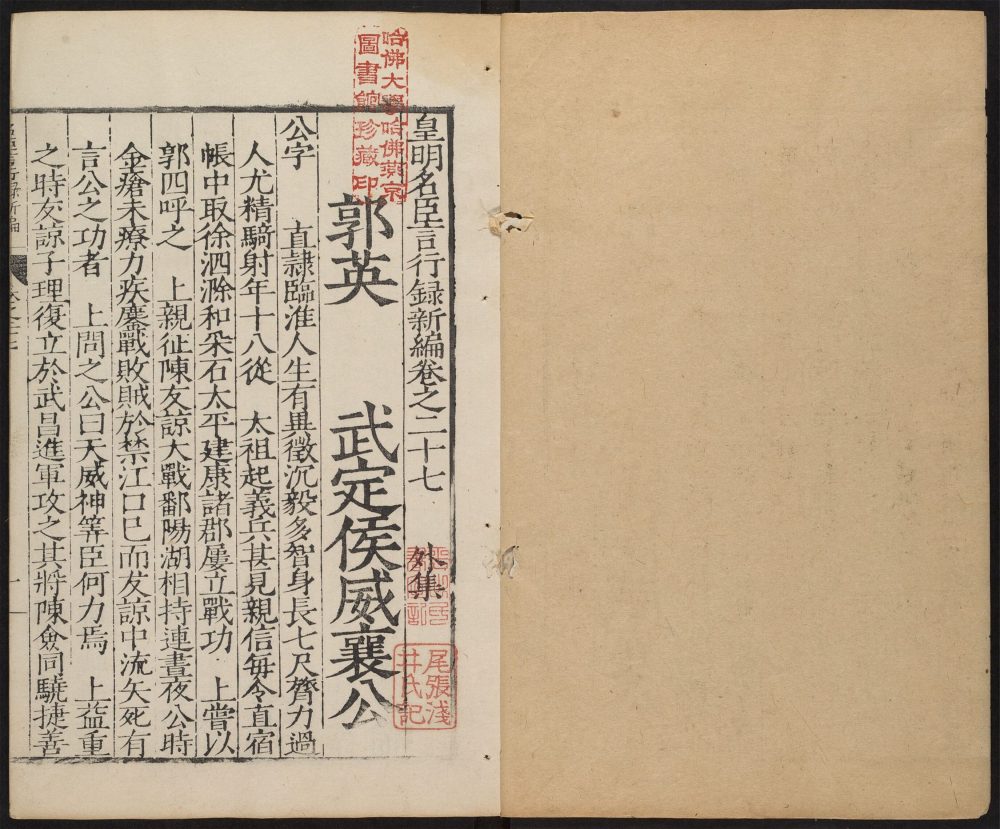 皇明名臣言行録新編卷之二十七　外集
哈佛大學哈佛燕京
圖書館珍藏印
尾張淺
井氏記
郭英　武定侯威襄公
公字　直隷臨淮人生有異徵沉毅多智身長七尺膂力過
人尤精騎射年十八從　太祖起義兵甚見親信每令直宿
帳中取徐泗滁和采石太平建康諸郡屢立戰功　上嘗以
郭四呼之　上親征陳友諒大戰鄱陽湖相持連晝夜公時
金瘡未療力疾鏖戰敗賊於禁江口已而友諒中流矢死有
言公之功者　上問之公曰天威神筭臣何力焉　上益重
之時友諒子理復立於武昌進軍攻之其將陳僉同驍捷善